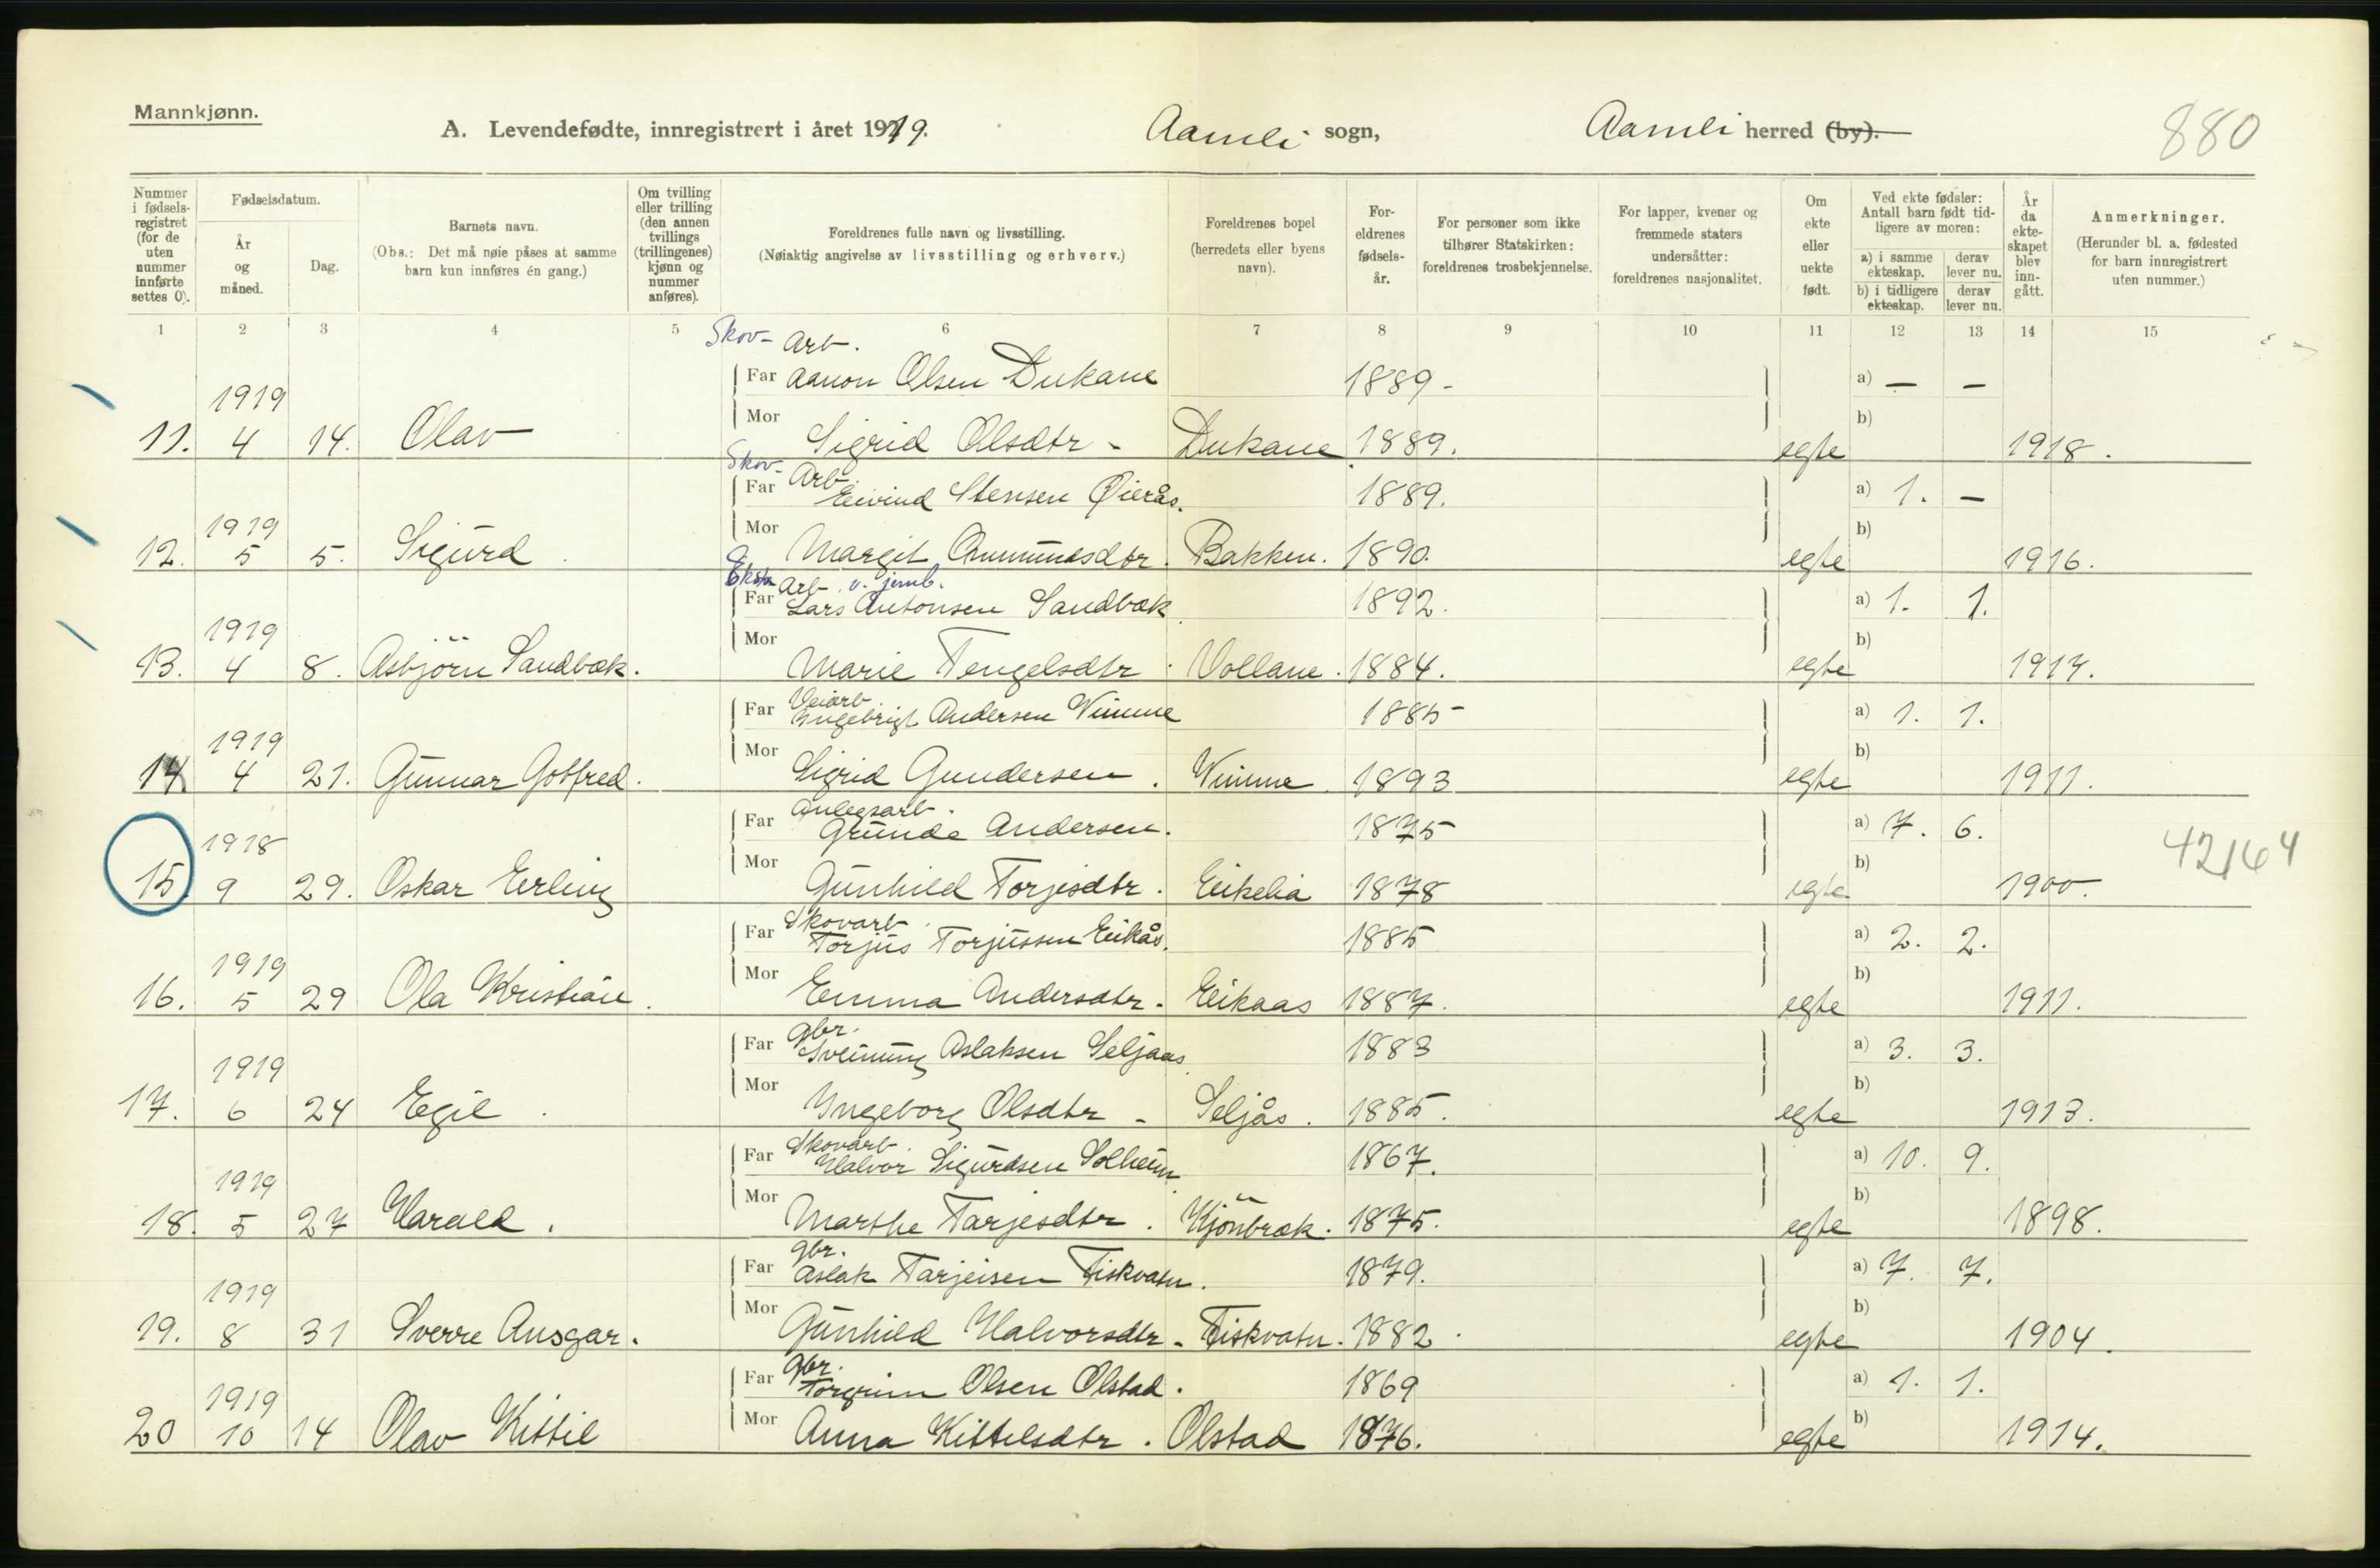 Mannkjønn.
A. Levendefødte, innregistrert i året 1919. Aamli sogn, Aamli herred (by). 880
Nummer i fødselsregistret (for de uten nummer innførte settes 0).
Fødselsdatum.
År og måned.
Dag.
Barnets navn.
(Obs.: Det må nøie påses at samme barn kun innføres én gang.)
Om tvilling eller trilling (den annen tvillings (trillingenes) kjønn og nummer anføres).
Foreldrenes fulle navn og livsstilling.
(Nøiaktig angivelse av livsstilling og erhverv.)
Foreldrenes bopel (herredets eller byens navn).
Foreldrenes fødselsår.
For personer som ikke tilhører Statskirken: foreldrenes trosbekjennelse.
For lapper, kvener og fremmede staters undersåtter: foreldrenes nasjonalitet.
Om ekte eller uekte født.
Ved ekte fødsler: Antall barn født tidligere av moren:
a) i samme ekteskap. derav lever nu.
b) i tidligere ekteskap. derav lever nu.
År da ekteskapet blev inngått.
Anmerkninger.
(Herunder bl. a. fødested for barn innregistrert uten nummer.)
1 2 3 4 5 6 7 8 9 10 11 12 13 14 15
Skov- Arb.
Far Aanon Olsen Dukane 1889 - a) — —
1919
Mor b)
11. 4 14. Olav Sigrid Olsdtr - Dukane 1889. egte 1918.
Skov- Arb.
Far Eivind Stensen Øierås. 1889. a) 1. —
1919
Mor b)
12. 5 5. Sigurd Margit Ammundsdtr. Bakken. 1890. egte 1916.
Arb. v. jernb.
Far Lars Antonsen Sandbæk 1892. a) 1. 1.
1919
Mor b)
13. 4 8. Asbjörn Sandbæk. Marie Tengelsdtr. Vollane. 1884. egte 1917.
Veiarb.
Far Ingebrigt Andersen Vimme 1885 a) 1. 1.
1919
Mor b)
14 4 21. Gunnar Gotfred. Sigrid Gundersen. Vimme 1893 egte 1911.
Anlegsarb.
Far Grunde Andersen. 1875 a) 7. 6.
1918
Mor b) 42164
15. 9 29. Oskar Erling Gunhild Torjesdtr. Eikelia 1878 egte 1900.
Skovarb.
Far Torjus Torjussen Eikås. 1885 a) 2. 2.
1919
Mor b)
16. 5 29 Ola Kristian. Emma Andersdtr. Eikaas 1887. egte 1911.
gbr.
Far Sveinung Aslaksen Seljaas 1883 a) 3. 3.
1919
Mor b)
17. 6 24 Egil. Ingeborg Olsdtr - Seljås. 1885. egte 1913.
Skovarb.
Far Halvor Sigurdsen Solheim 1867. a) 10. 9.
1919
Mor b)
18. 5 27 Harald. Marthe Tarjesdtr. Kjönbræk. 1875. egte 1898.
gbr.
Far Aslak Tarjeisen Fiskvatn. 1879. a) 7. 7.
1919
Mor b)
19. 8 31 Sverre Ansgar. Gunhild Halvorsdtr - Fiskvatn. 1882. egte 1904.
gbr.
Far Torgrim Olsen Olstad. 1869 a) 1. 1.
1919
Mor b)
20 10 14 Olav Kittil Anna Kittilsdtr. Olstad 1876. egte 1914.